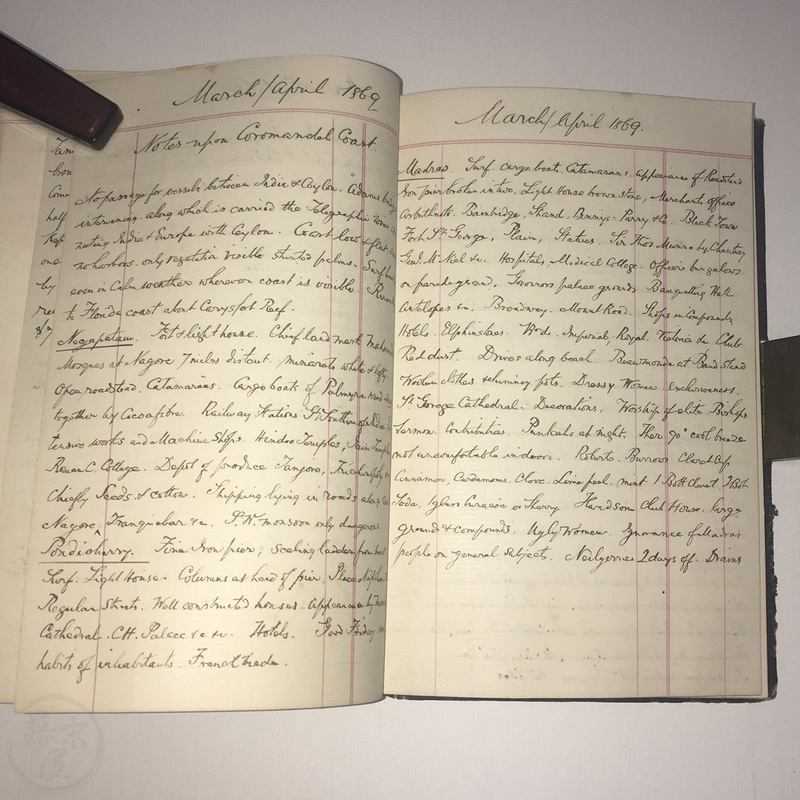 March/April 1869
Notes upon Coromandel Coast.
No passage for vessels between India & Ceylon. Adams
intervening along which is carried the Telegraphic
necting India & Europe with Ceylon. Coast low & flat
no harbors. only vegetation visible stunted palms. Surf
even in Calm weather wherever coast is visible.
to Florida coast about Carysfort Reef.
Negapatam. Fort & light house. Chief land mark
Mosques at Nagore 7 miles distant. minarets white & lofty.
Open roadstead. Catamarans. Cargo boats of Palmyra
together by Cocoa fibre. Railway Station Gt Southern of India
tensive works and Machine Shops. Hindoo Temples,
Roman C. College. Depot of produce Tanjore, Trichinopoly
Chiefly Seeds & cotton. Shipping lying in roads along
Nagore, Tranquebar &c. monsoon only dangerous
Pondicherry. Fine Iron pier; Scaling ladder from boat
Surf. Light House. Columns at head of pier. Place
Regular Streets. Well constructed houses. appearance by
Cathedral. Palace &c &c. Hotels. Good Friday
habits of inhabitants. French trade.
March/April 1869.
Madras. Surf. cargo boats. Catamarans. appearance of Roadstead
Iron pier broken in two. Light House brown stone, Merchants offices
Arbuthnot. Bainbridge, Shand. Binnys. Parry & Co. Black Town
Fort St George, Plain, Statues. Sir Thos Munro by Chantrey
Genl McNeil &c. Hospitals, Medical College. Officers bungalows
on parade ground, Governors palace grounds. Banquetting Hall
Antelopes &c. Broadway. Mount Road. Shops in Compounds
Hotels. Elphinstone. Imperial, Royal. Victoria &c Clubs
Red dust. Drives along beach. Beaumonde at Band Stand
Woolen clothes chimney pots. Dressy Women. Exclusiveness.
St George Cathedral. Decorations, Worship of elite. Bishops
Sermon. Contributions. Punkahs at night. Ther 90° cool breeze
not uncomfortable indoors. Roberts. Burrows. Claret Cup
Cinnamon. Cardamoms. Clove. Lime peel. mint. 1 Bott Claret 2 Bott
Soda. 1 glass Curacoa or Sherry. Handsome Club House. large
grounds & compounds. Ugly Women. Ignorance of Madras
people on general subjects. Neilgerries 2 days off. Drains